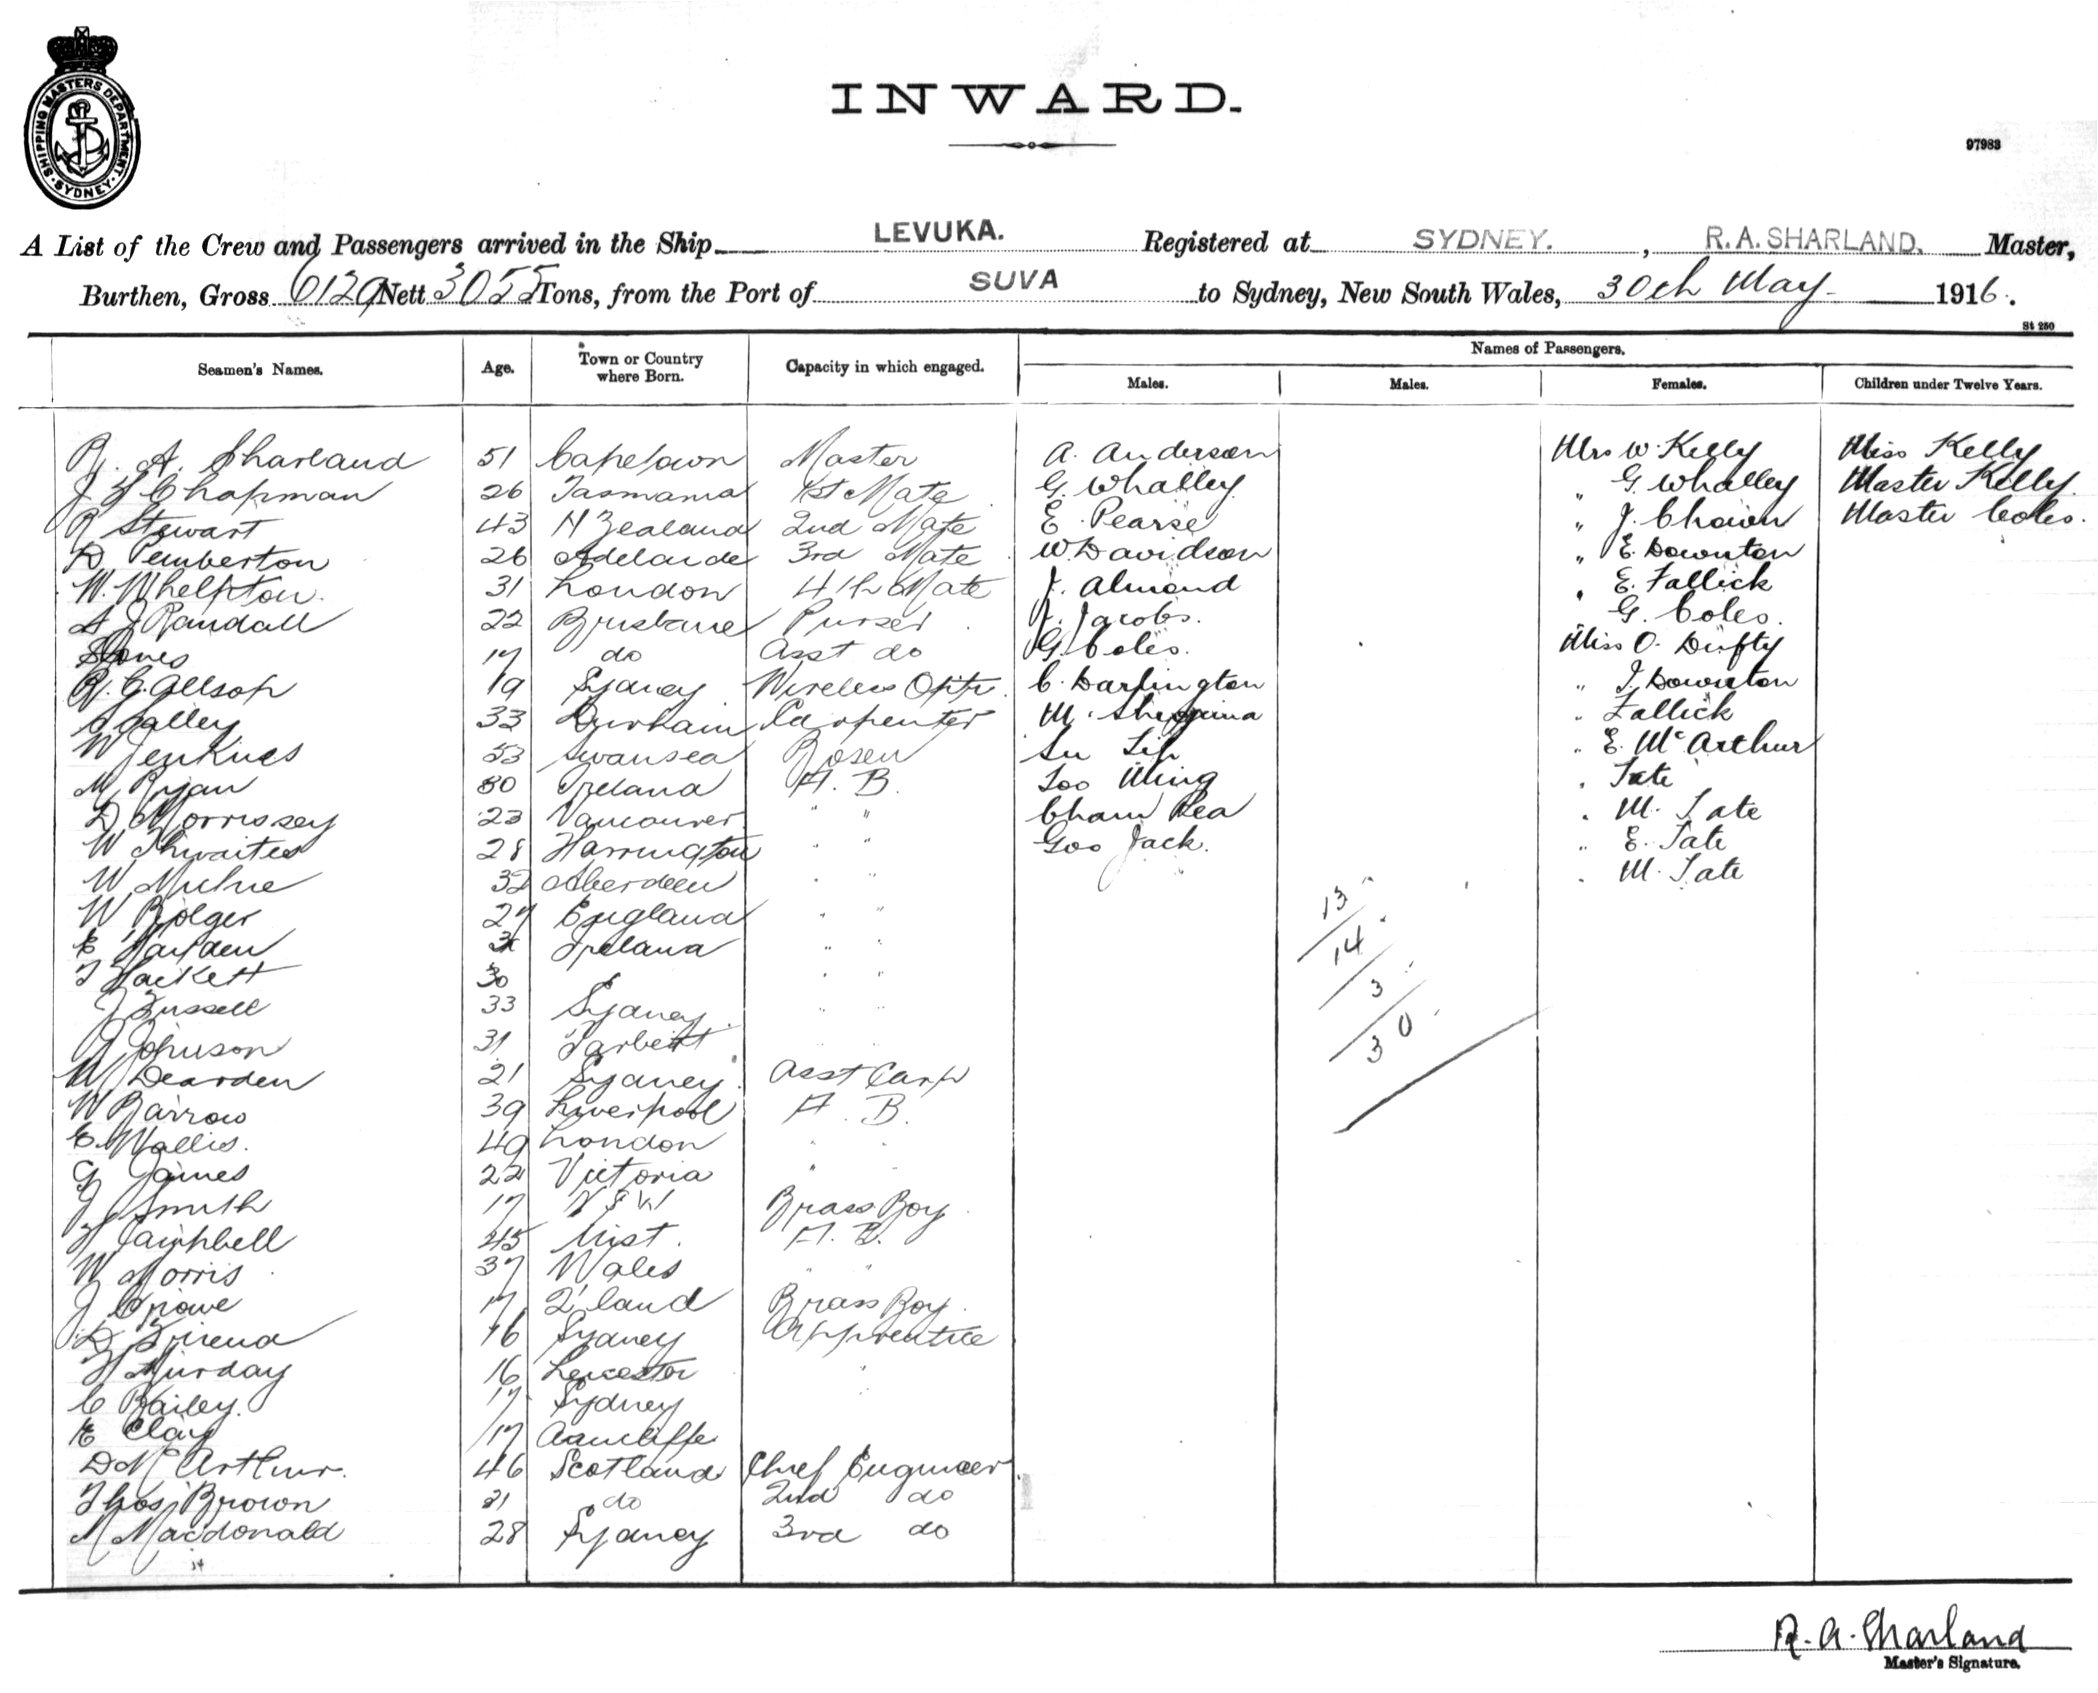 SHIPPING MASTERS DEPARTMENT
SYDNEY
INWARD.
97983
A List of the Crew and Passengers arrived in the Ship LEVUKA. Registered at SYDNEY. , R. A. SHARLAND. Master,
Burthen, Gross 6129 Nett 3055 Tons, from the Port of SUVA to Sydney, New South Wales, 30th May 1916.
St 250
Names of Passengers.
Seamen's Names. Age. Town or Country where Born. Capacity in which engaged. Males. Males. Females. Children under Twelve Years.
R. A. Sharland 51 Capetown Master A. Anderson Mrs W. Kelly Miss Kelly
J Chapman 26 Tasmania 1st Mate G. Whalley " G. Whalley Master Kelly
R Stewart 43 N Zealand 2nd Mate E. Pearse " J. Chown Master Coles.
D Pemberton 26 Adelaide 3rd Mate W. Davidson " E. Downton
W. Whelpton. 31 London 4th Mate J. Almond " E. Fallick
A J Randall 22 Brisbane Purser J. Jacobs. " G. Coles.
Jones 17 do Asst do G. Coles. Miss O. Dufty
R. G. Allsop 19 Sydney Wireless Optr. C. Darlington " J. Downton
33 Durham Carpenter M. " Fallick
W Jenkins 53 Swansea Bosen Su " E. McArthur
M Ryan 30 Ireland A. B. Loo Ming " Tate
D Morrissey 23 Vancouver " " Cham " M. Tate
W Thwaites 28 Harrington " " Goo Jack. " E. Tate
W Milne 32 Aberdeen " " " M. Tate
W Bolger 27 England " " 13
E Hayden Ireland " " 14
T Hackett 30 " " 3
J Russell 33 Sydney " " 30
Johnson 31 Tarbert
W Dearden 21 Sydney Asst Carp
W Barrow 39 Liverpool A. B.
E. Wallis. 49 London " "
G James 22 Victoria " "
J Smith 17 N S W Brass Boy
Campbell 45 Uist. A. B.
W Morris 37 Wales " "
J Crowe 17 Q'land Brass Boy
D Friend 16 Sydney Apprentice
H Murday 16 Leicester "
C Bailey. 17 Sydney "
E Clay 17
D McArthur. 46 Scotland Chief Engineer
Thos Brown 31 do 2nd do
Macdonald 28 Sydney 3rd do
34
R. A. Sharland
Master's Signature.